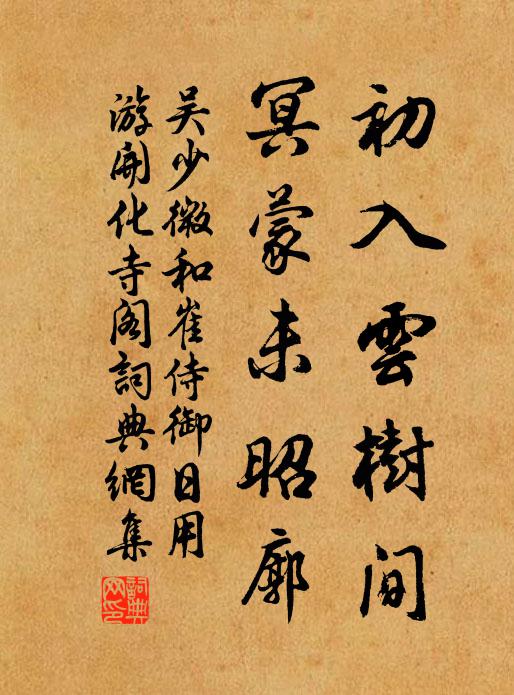 初入雲樹間
冥蒙未昭廓
吴少微和崔侍御日用
游開化寺阁詞典網集
詞典网印